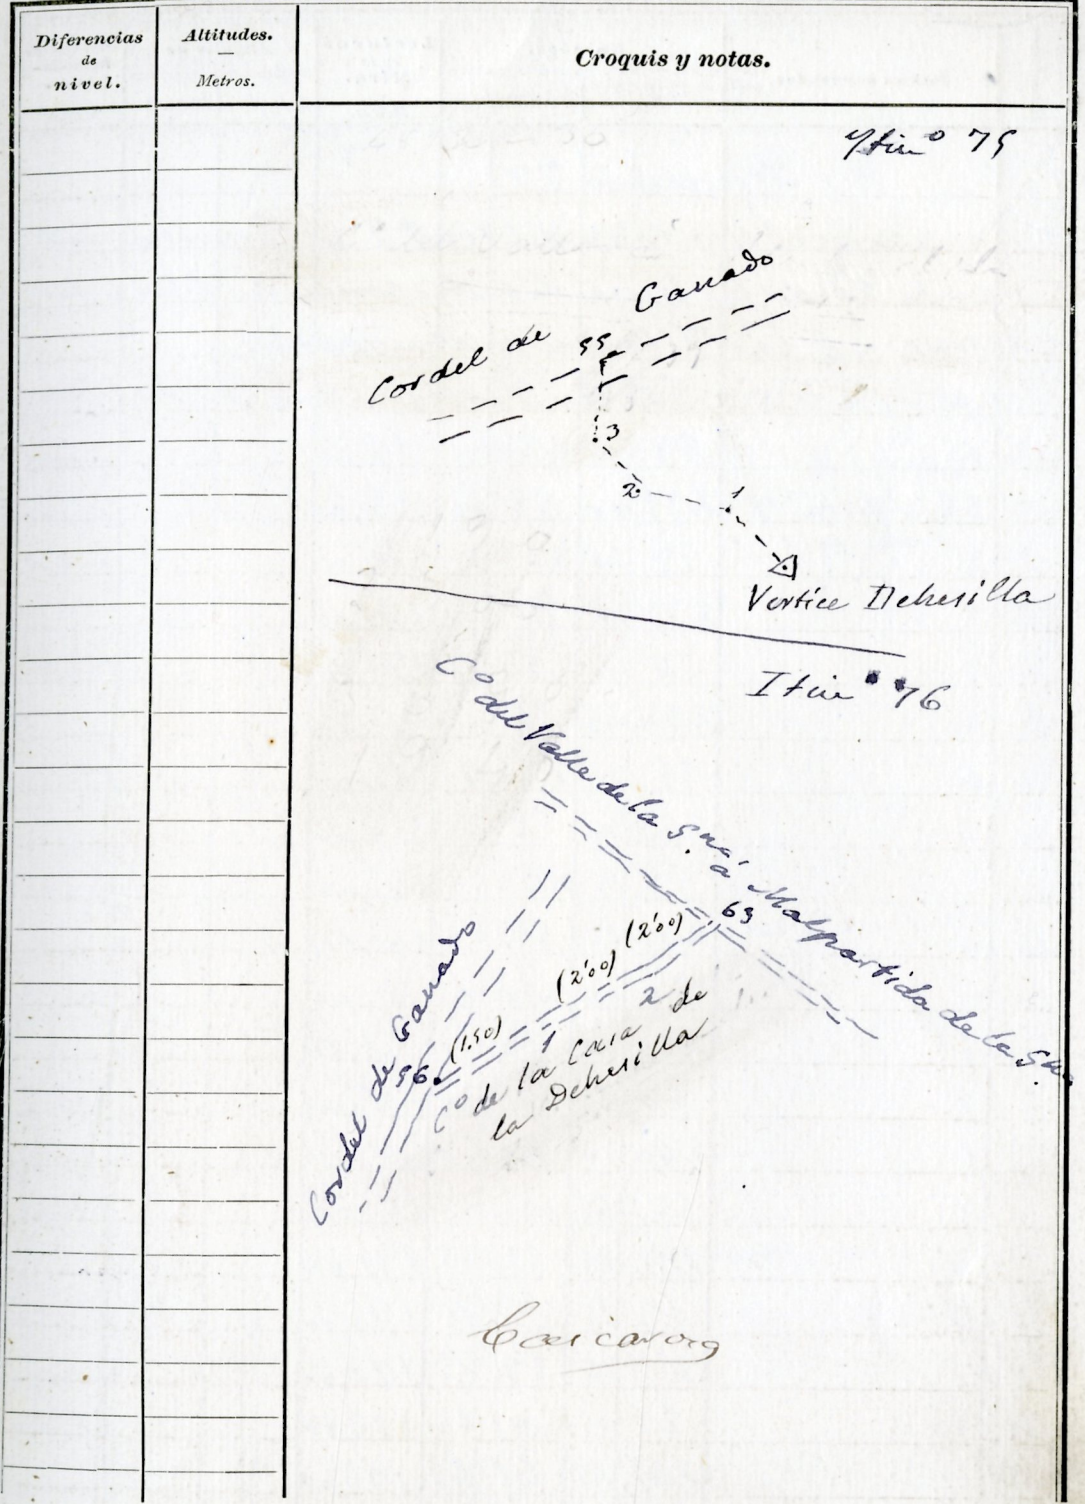 Diferencias
de
nivel.
Altitudes.
Metros.
Croquis y notas.
Itinº 75
Cordel de Ganado
55
3
2
1
Vertice Dehesilla
Itinº 76
Cº del Valle de la Sna á Malpartida de la Sna
Cordel de Ganado
56
(1.50)
(2'00)
(2'00)
63
1
2
Cº de la Casa de
la Dehesilla